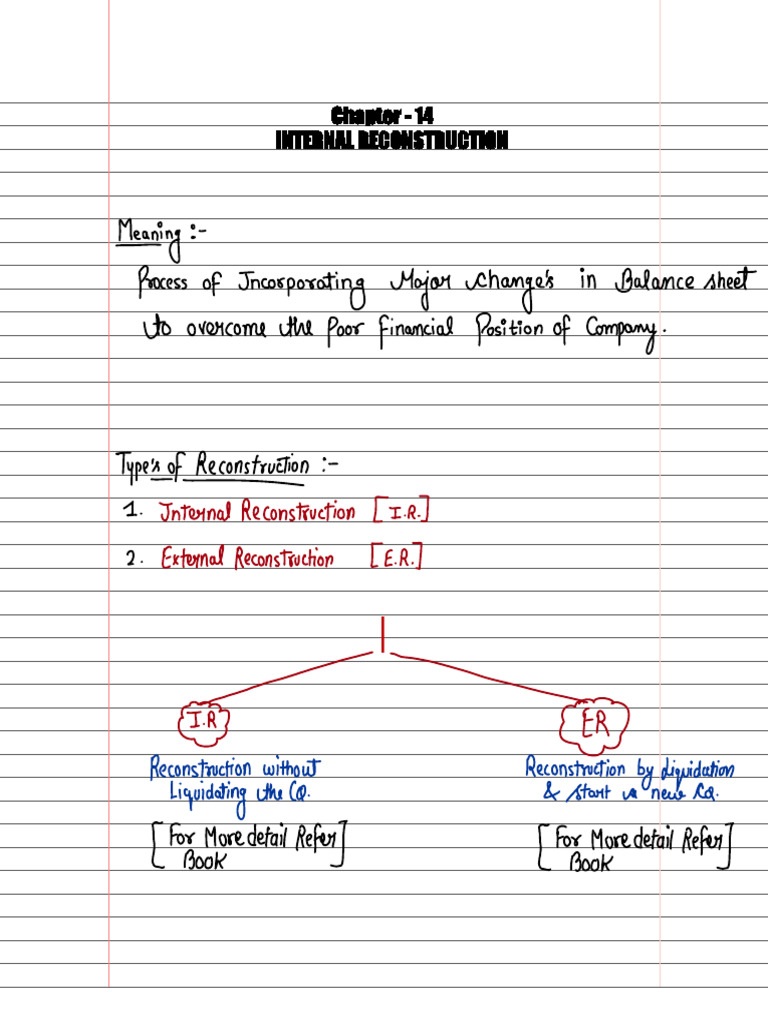 Chapter - 14
INTERNAL RECONSTRUCTION
Meaning :-
Process of Incorporating Major Change's in Balance sheet
to overcome the Poor Financial Position of Company.
Type's of Reconstruction :-
1. Internal Reconstruction [I.R.]
2. External Reconstruction [E.R.]
I.R
ER
Reconstruction without
Liquidating the Co.
Reconstruction by Liquidation
& start a new Co.
[For More detail Refer
Book]
[For More detail Refer
Book]